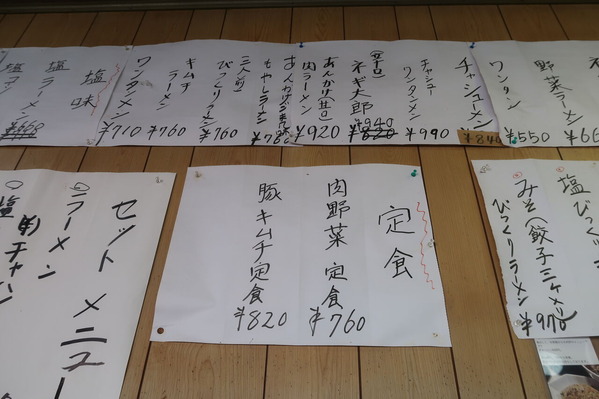 野菜ラーメン
ワンタン
¥550
チャシューメン
¥840
チャシュー
ワンタンメン
¥990
(辛口)
ネギ太郎
¥940
¥820
あんかけ(甘口)
肉ラーメン
¥920
もやしラーメン
¥760
三人前
びっくりラーメン
¥760
キムチ
ラーメン
¥760
ワンタンメン
¥710
塩味
塩ラーメン
定食
肉野菜定食
¥760
豚キムチ定食
¥820
みそ(餃子三ケ〆)
びっくりラーメン
¥970
セットメニュー
ラーメン